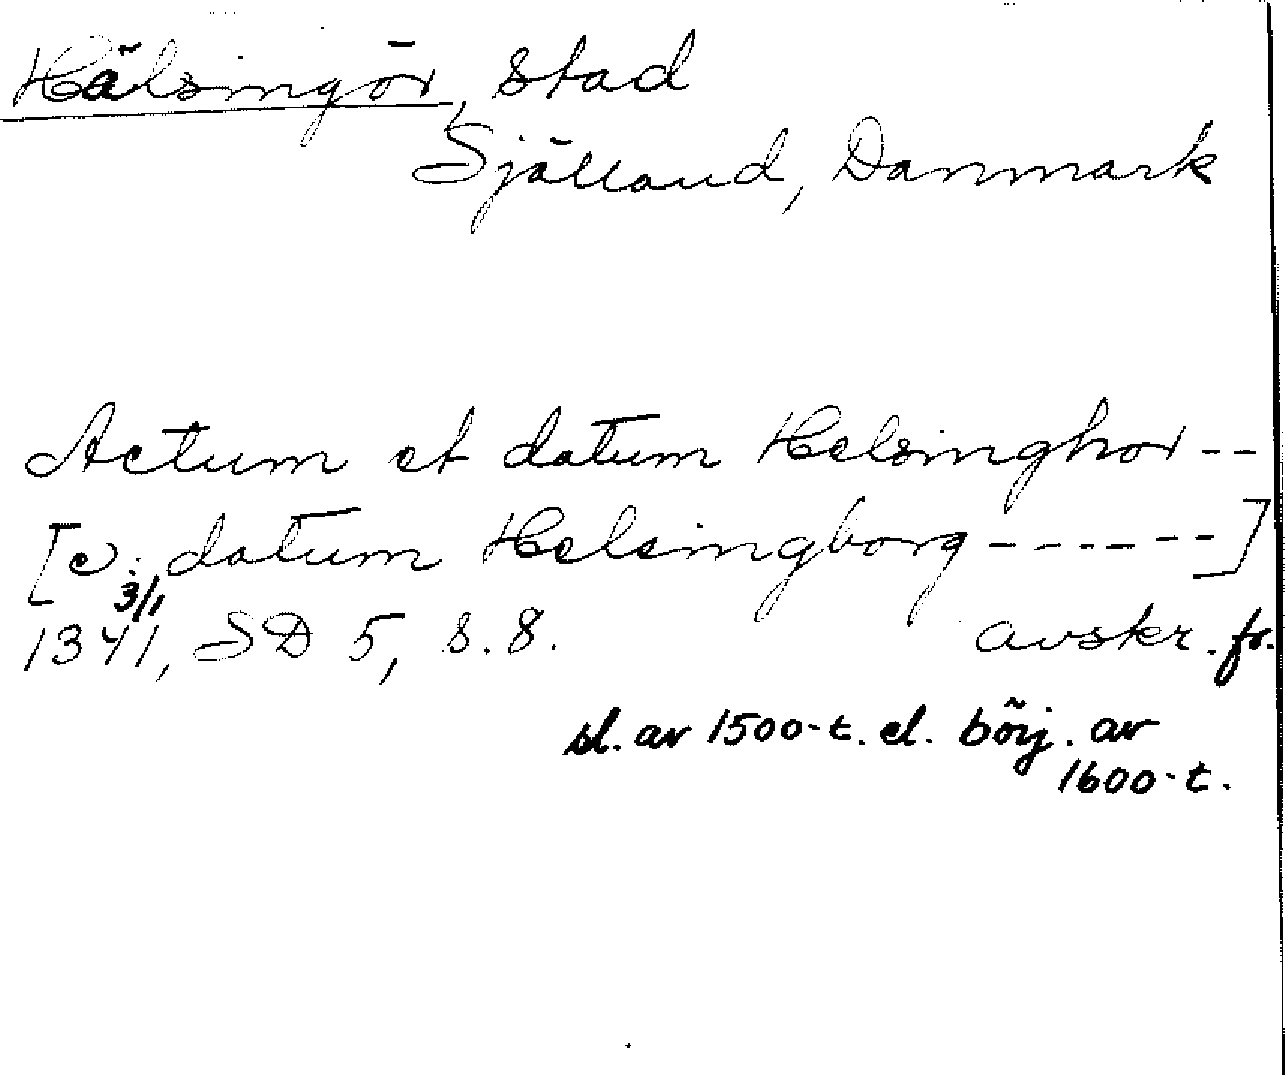 Hälsingör, stad
Sjålland, Danmark
Actum et datum Helsinghor --
[c: datum Helsingborg ------]
3/1
1341, SD 5, s. 8. avskr. fr.
sl. av 1500-t. el. börj. av
1600-t.